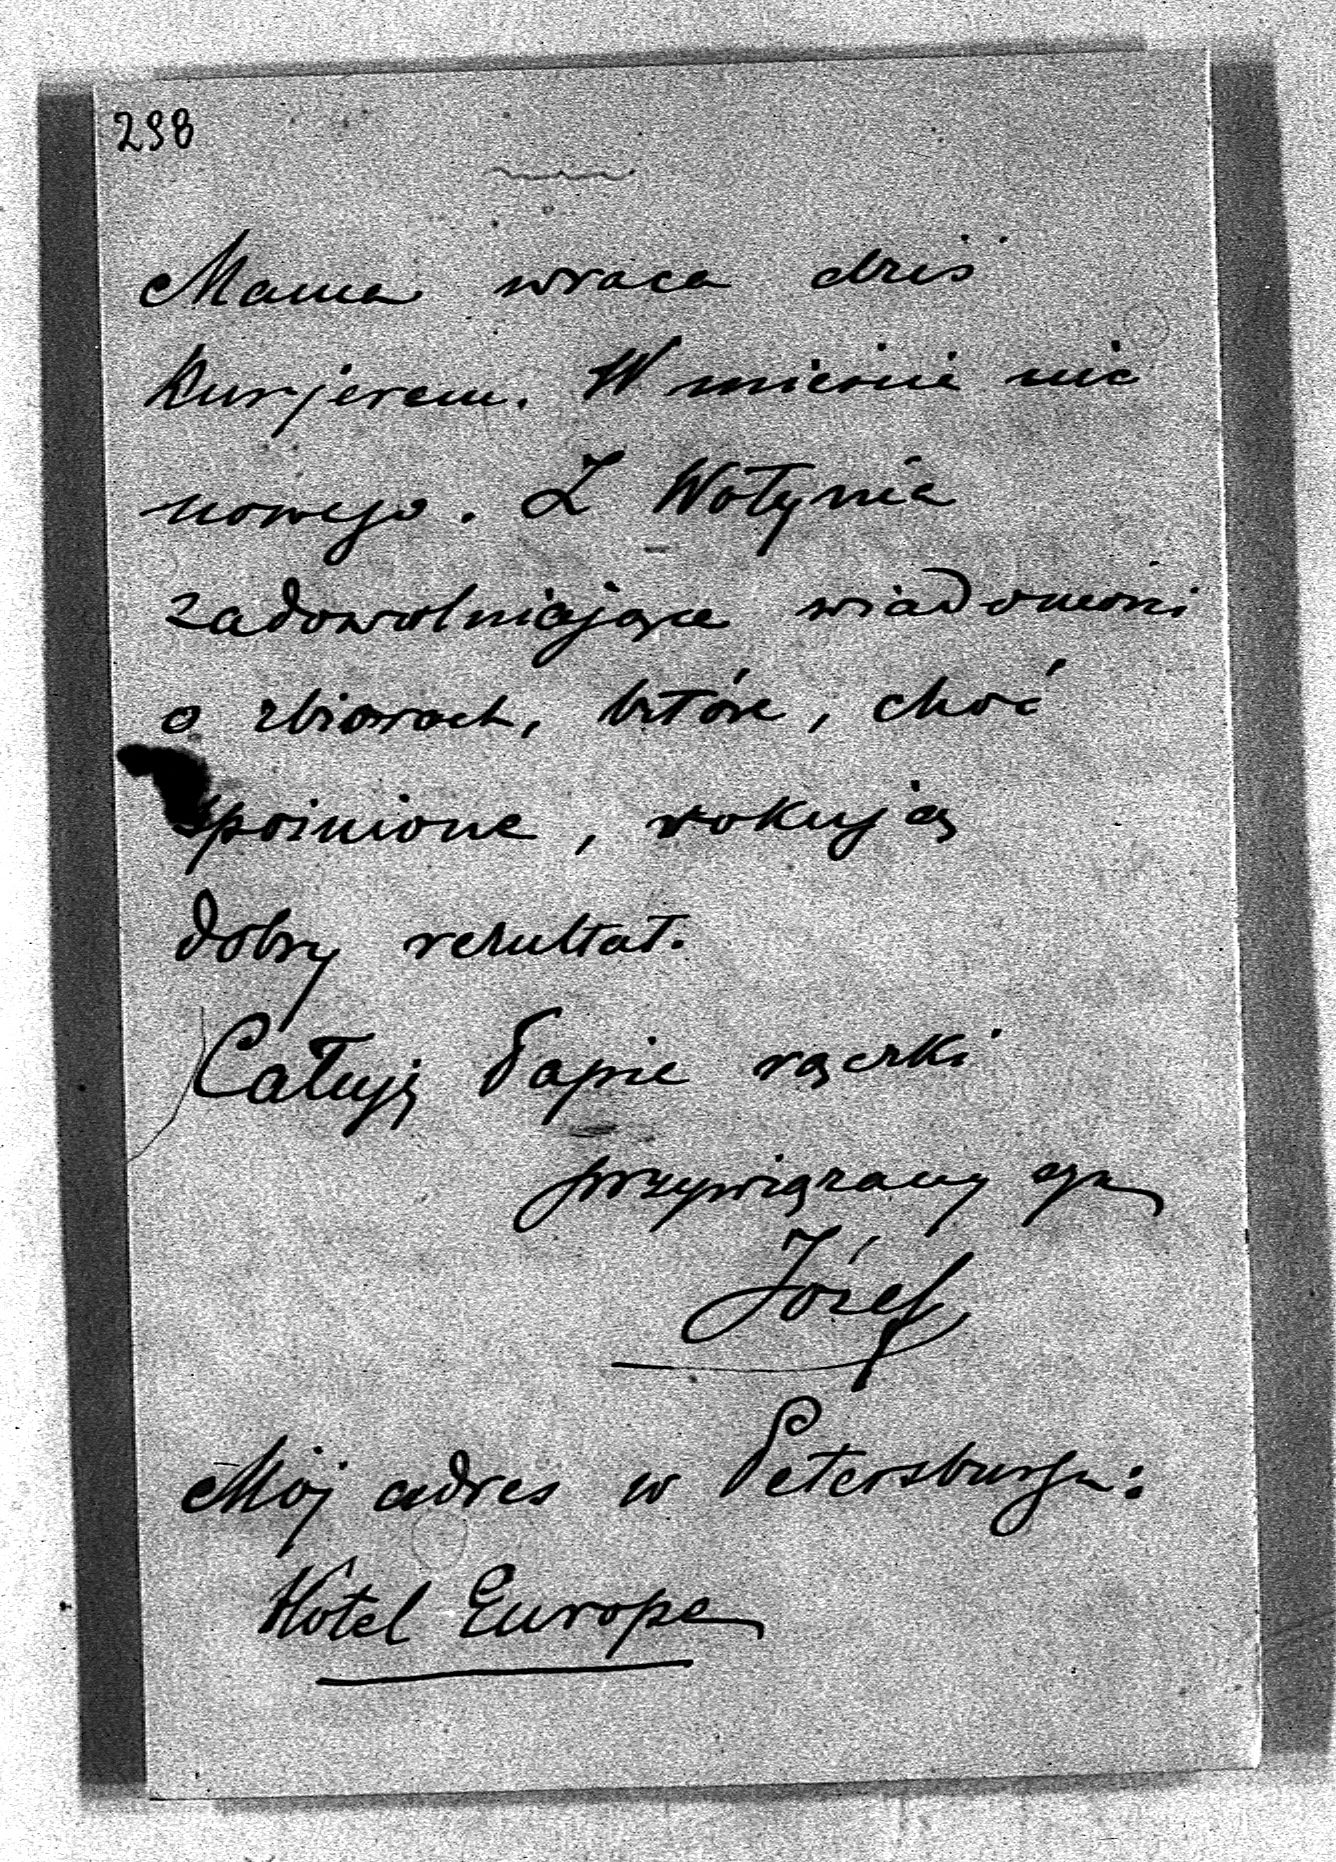 298
Mama wraca dziś
kurjerem. W mieście nic
nowego. Z Wołynia
zadowolniające wiadomości
o zbiorach, które, choć
spóźnione, rokują
dobry rezultat.
Całuję Papie rączki
przywiązany syn
Józef
Mój adres w Petersburgu:
Hotel Europe